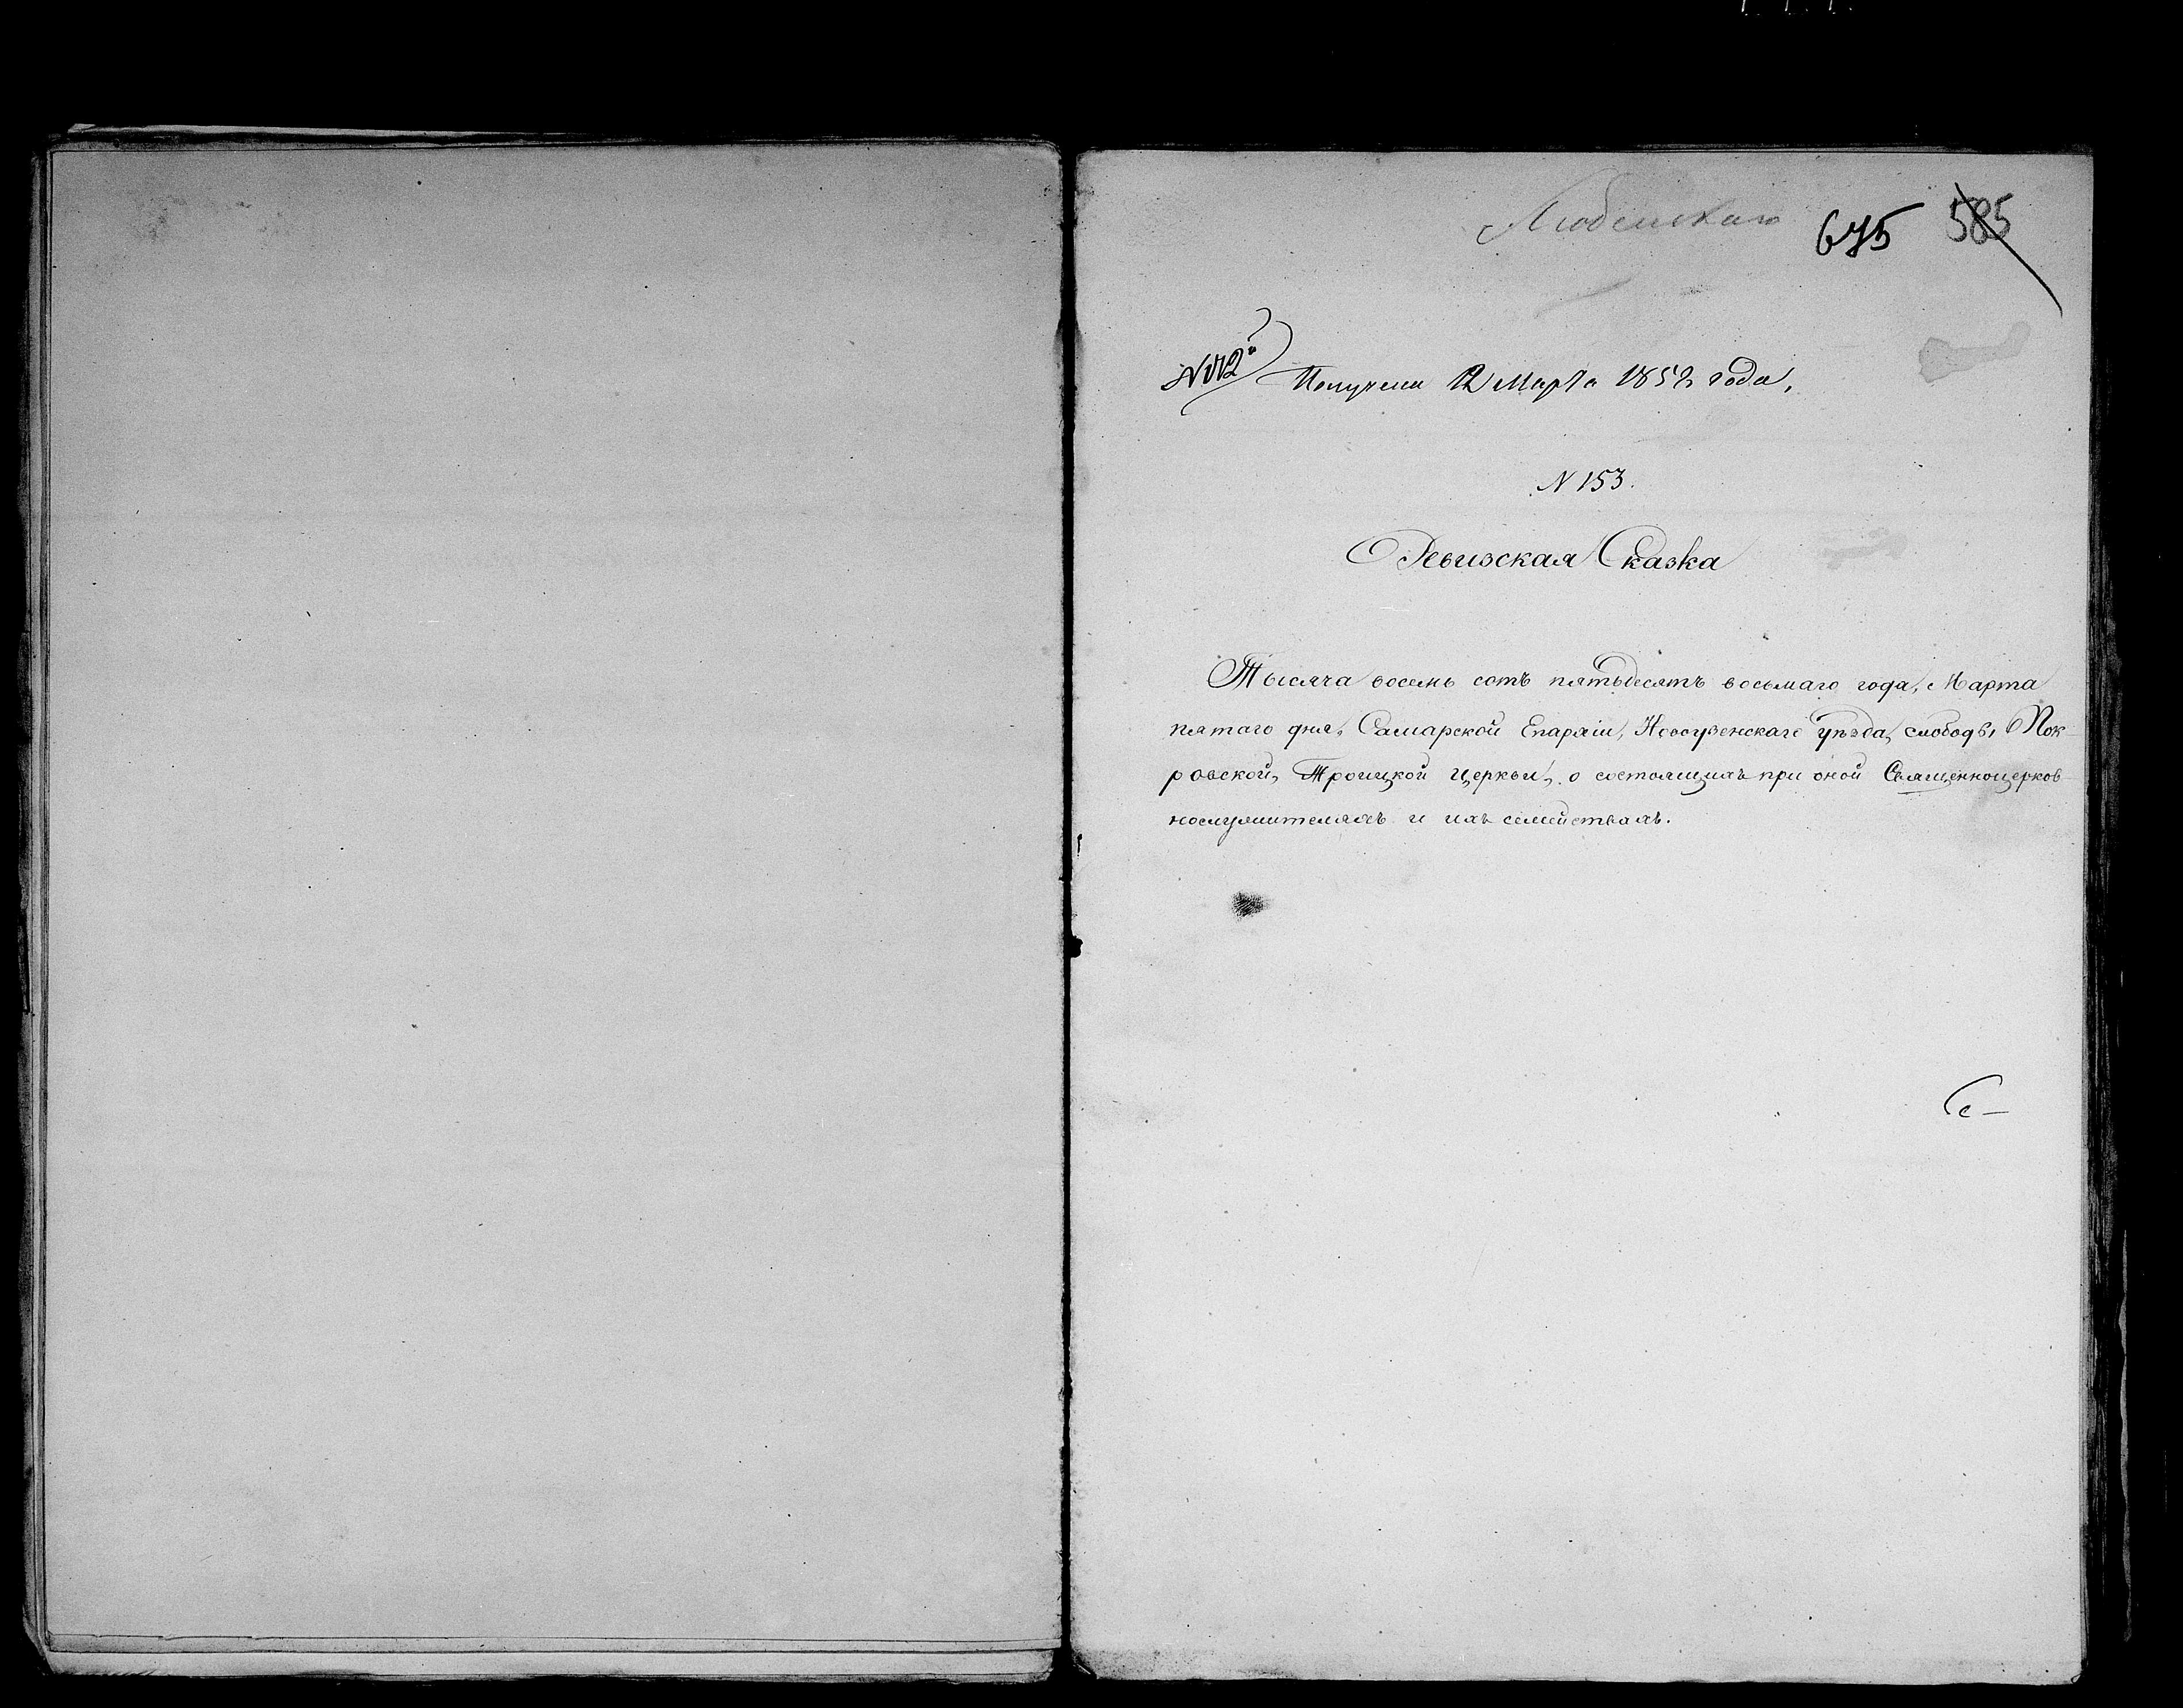 675 585
Получена 12 Марта 1858 года,
N 153.
Ревизская Сказка
Тысяча восемь сотъ пятьдесятъ восьмаго года, Марта
пятаго дня, Самарской Епархіи, Новоузенскаго уѣзда, слободы Пок-
ровской, Троицкой церкви, о состоящихъ при оной Священноцерков-
нослужителяхъ и ихъ семействахъ.